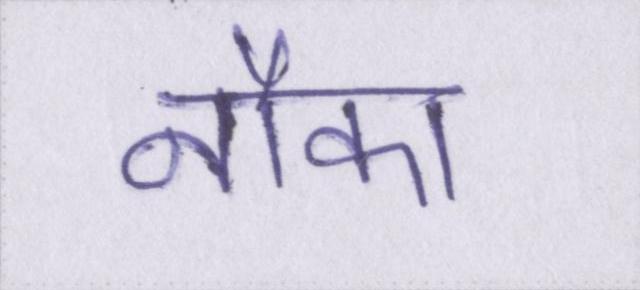 नौका